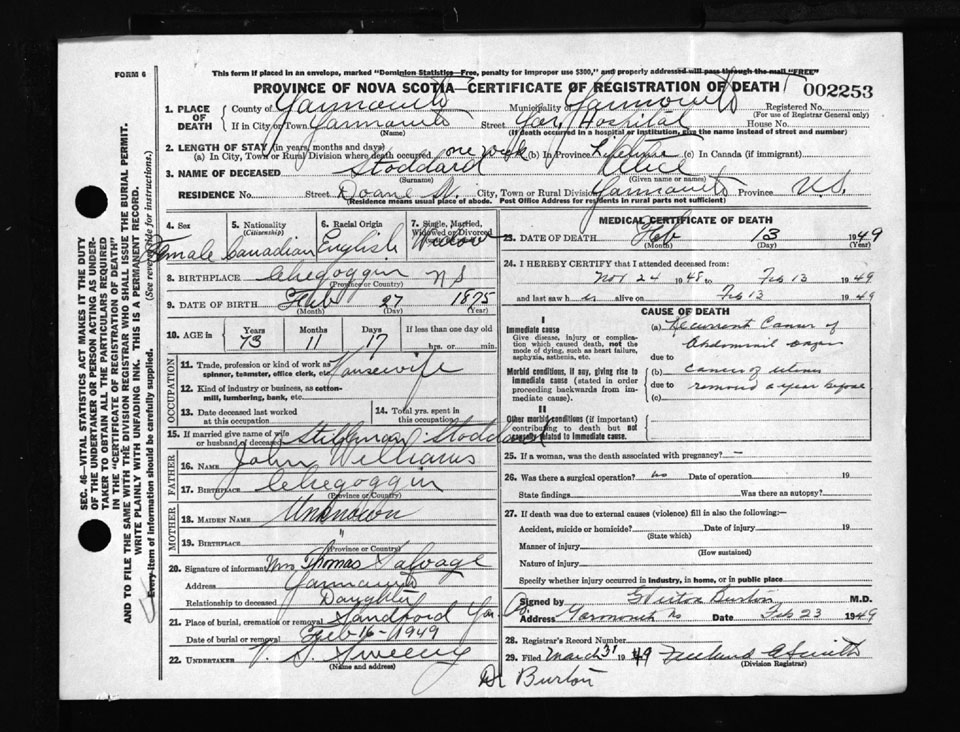 FORM 6
This form if placed in an envelope, marked "Dominion Statistics—Free, penalty for improper use $300," and properly addressed will pass through the mail "FREE"
PROVINCE OF NOVA SCOTIA—CERTIFICATE OF REGISTRATION OF DEATH
002253
1. PLACE OF DEATH
County of Yarmouth Municipality of Yarmouth Registered No.
(For use of Registrar General only)
If in City or Town Yarmouth Street Yar Hospital House No.
(Name) (If death occurred in a hospital or institution, give the name instead of street and number)
2. LENGTH OF STAY (in years, months and days)
(a) In City, Town or Rural Division where death occurred one week (b) In Province Lifetime (c) In Canada (if immigrant)
3. NAME OF DECEASED Stoddard Alice
(Surname) (Given name or names)
RESIDENCE No. Street Doane St. City, Town or Rural Division Yarmouth Province N.S.
(Residence means usual place of abode. Post Office Address for residents in rural parts not sufficient)
4. Sex Female
5. Nationality (Citizenship) Canadian
6. Racial Origin English
7. Single, Married, Widowed or Divorced Widow
8. BIRTHPLACE Chegoggin N S
(Province or Country)
9. DATE OF BIRTH Feb 27 1875
(Month) (Day) (Year)
10. AGE in Years Months Days If less than one day old
73 11 17 hrs. or min.
OCCUPATION
11. Trade, profession or kind of work as spinner, teamster, office clerk, etc. Housewife
12. Kind of industry or business, as cotton-mill, lumbering, bank, etc.
13. Date deceased last worked at this occupation
14. Total yrs. spent in this occupation
15. If married give name of wife or husband of deceased Stillman Stoddard
FATHER
16. NAME John Williams
17. BIRTHPLACE Chegoggin
(Province or Country)
MOTHER
18. MAIDEN NAME Unknown
19. BIRTHPLACE "
(Province or Country)
20. Signature of informant Mrs Thomas Salvage
Address Yarmouth
Relationship to deceased Daughter
21. Place of burial, cremation or removal Sandford Yar.
Date of burial or removal Feb 16 - 1949
22. UNDERTAKER V. S. Sweeny
(Name and address)
MEDICAL CERTIFICATE OF DEATH
23. DATE OF DEATH Feb 13 1949
(Month) (Day) (Year)
24. I HEREBY CERTIFY that I attended deceased from:
Nov 24 1948 to Feb 13 1949
and last saw her alive on Feb 13 1949
CAUSE OF DEATH
I
Immediate cause
Give disease, injury or complication which caused death, not the mode of dying, such as heart failure, asphyxia, asthenia, etc.
(a) Recurrent Cancer of
Abdominal organs
due to
Morbid conditions, if any, giving rise to immediate cause (stated in order proceeding backwards from immediate cause).
(b) cancer of uterus
due to
removed a year before
(c)
II
Other morbid conditions (if important) contributing to death but not causally related to immediate cause.
25. If a woman, was the death associated with pregnancy? —
26. Was there a surgical operation? no Date of operation 19
State findings Was there an autopsy?
27. If death was due to external causes (violence) fill in also the following:—
Accident, suicide or homicide? Date of injury 19
(State which)
Manner of injury
(How sustained)
Nature of injury
Specify whether injury occurred in industry, in home, or in public place
Signed by G Victor Burton M.D.
Address Yarmouth NS Date Feb 23 1949
28. Registrar's Record Number
29. Filed March 31 1949
(Division Registrar)
Dr Burton
SEC. 46—VITAL STATISTICS ACT MAKES IT THE DUTY
OF THE UNDERTAKER OR PERSON ACTING AS UNDER-
TAKER TO OBTAIN ALL THE PARTICULARS REQUIRED
IN THE "CERTIFICATE OF REGISTRATION OF DEATH"
AND TO FILE THE SAME WITH THE DIVISION REGISTRAR WHO SHALL ISSUE THE BURIAL PERMIT.
WRITE PLAINLY WITH UNFADING INK. THIS IS A PERMANENT RECORD.
Every item of Information should be carefully supplied. (See reverse side for instructions.)